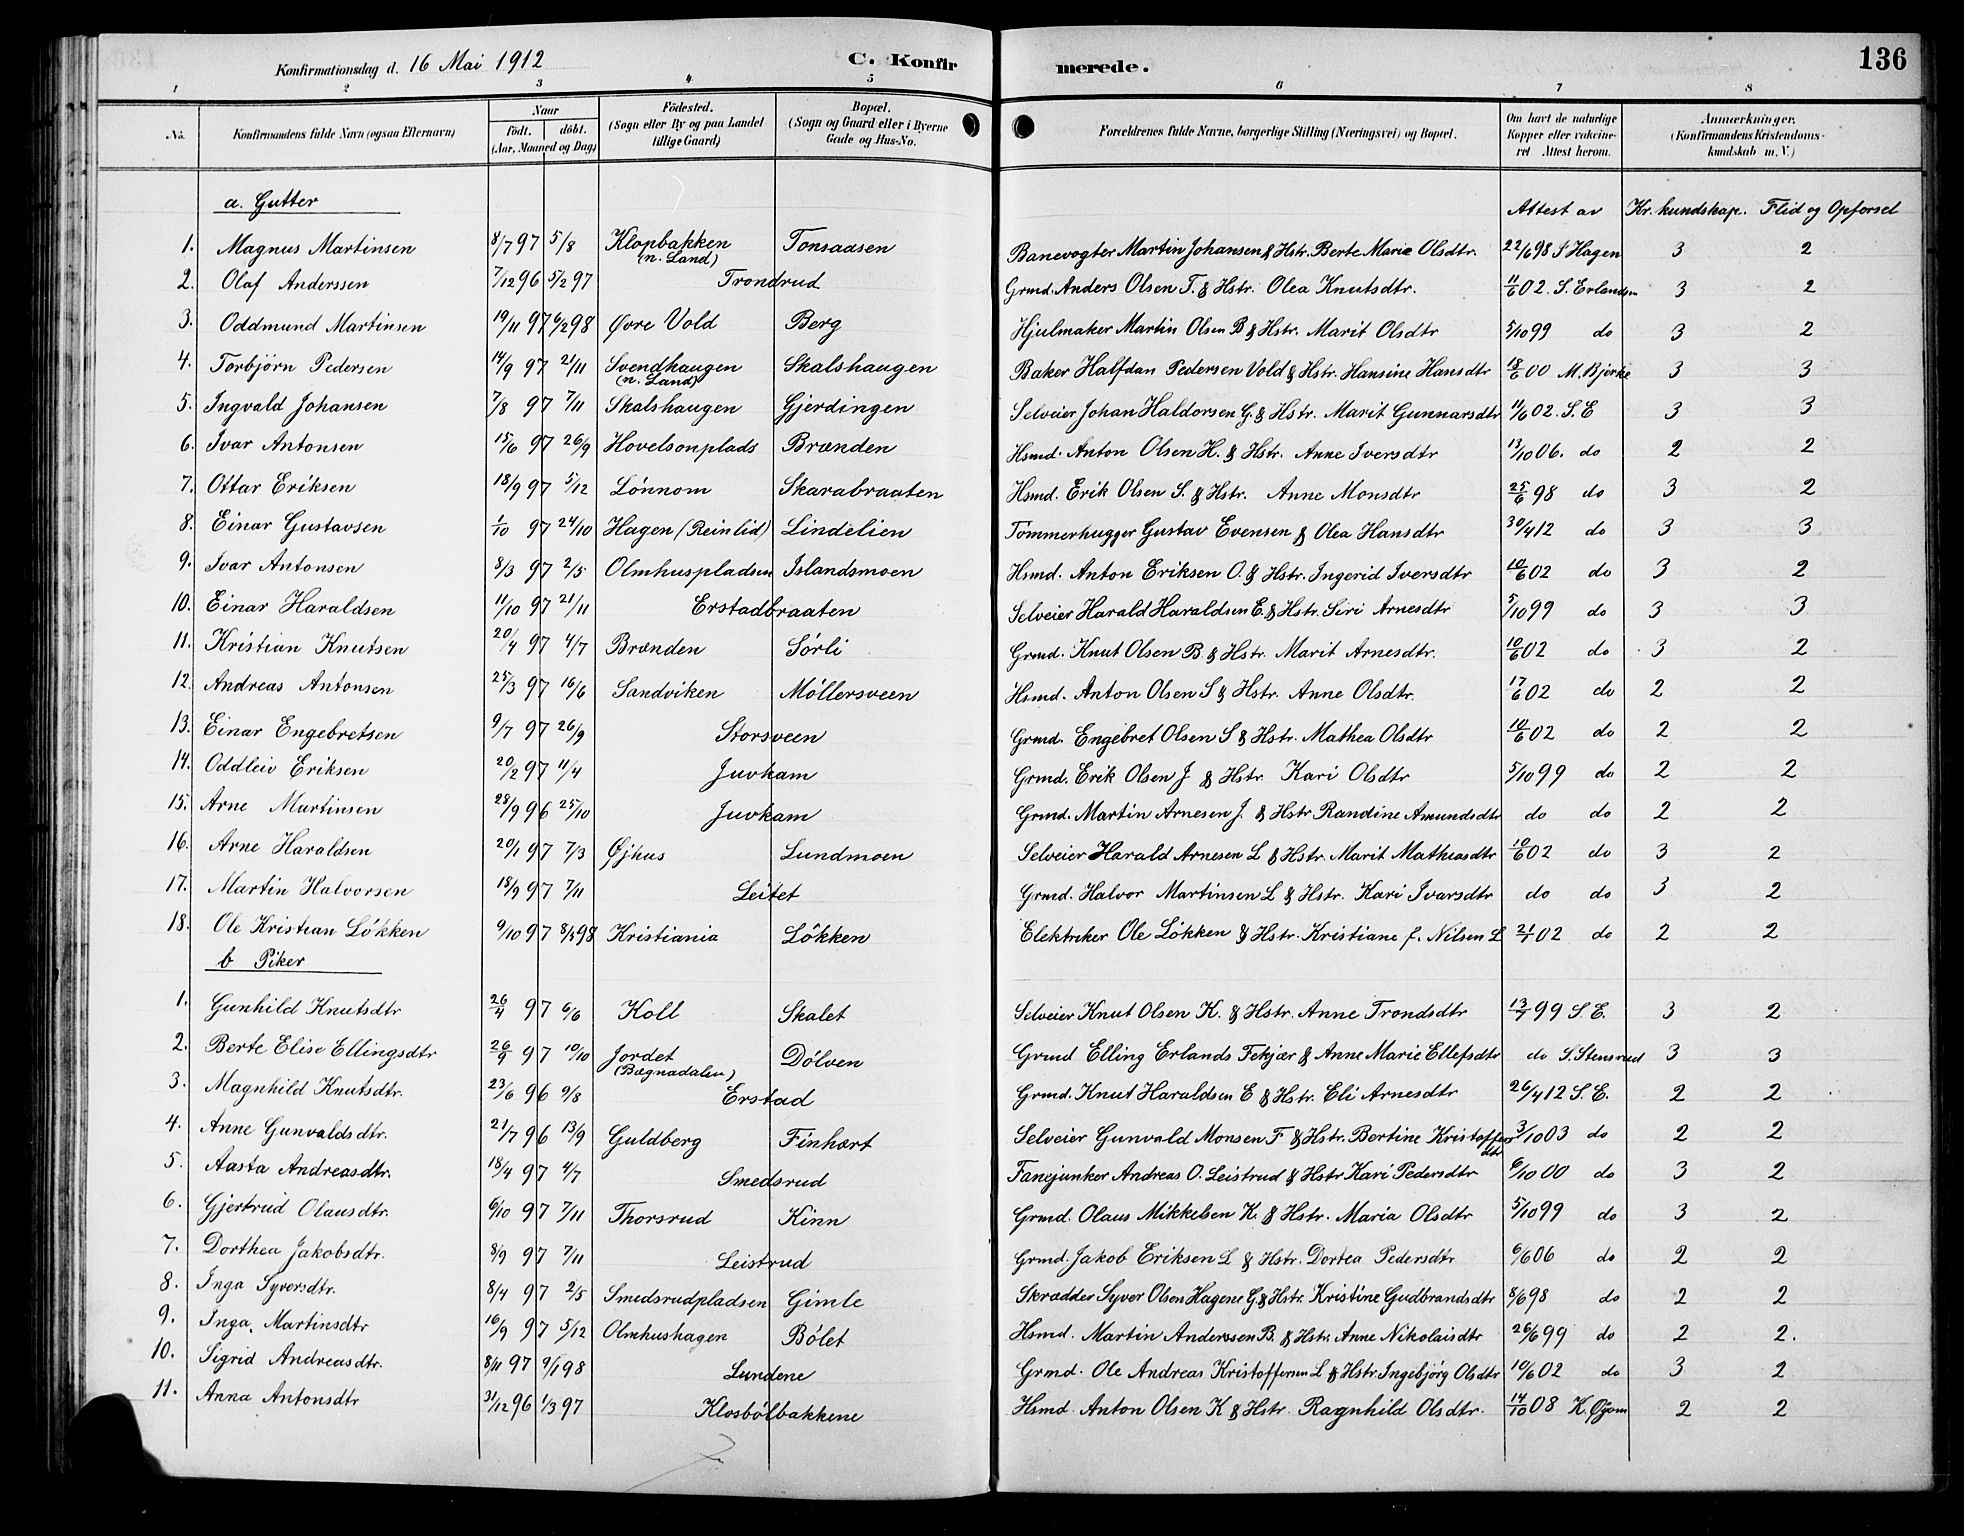 Konfirmationsdag d. 16 Mai 1912 C. Konfirmerede. 136
1 2 3 4 5 6 7 8
No. Konfirmandens fulde Navn (ogsaa Efternavn) Naar født. døbt. (Aar, Maaned og Dag) Fødested. (Sogn eller By og paa Landet tillige Gaard) Bopæl. (Sogn og Gaard eller i Byerne Gade og Hus-No. Forældrenes fulde Navne, borgerlige Stilling (Næringsvei) og Bopæl. Om havt de naturlige Kopper eller vakcineret Attest herom. Anmærkninger. (Konfirmandens Kristendomskundskab m. V.)
a. Gutter Attest av Kr. kundskap. Flid og Opførsel
1. Magnus Martinsen 8/7 97 5/8 Klopbakken (n. Land) Tonsaasen Banevogter Martin Johansen & Hstr. Berte Marie Olsdtr. 22/6 98 S Hagen 3 2
2. Olaf Anderssen 7/12 96 5/2 97 Trondrud Grmd. Anders Olsen T. & Hstr. Olea Knutsdtr. 11/6 02. S. Erlandsen 3 2
3. Oddmund Martinsen 19/11 97 6/2 98 Øvre Vold Berg Hjulmaker Martin Olsen B & Hstr. Marit Olsdtr 5/10 99 do 3 2
4. Torbjörn Pedersen 14/9 97 21/11 Svendhaugen (n. Land) Skalshaugen Baker Halfdan Pedersen Vold & Hstr. Hansine Hansdtr 18/6 00 M. Bjerke 3 3
5. Ingvald Johansen 7/8 97 7/11 Skalshaugen Gjerdingen Selveier Johan Haldorsen G. & Hstr. Marit Gunnarsdtr 11/6 02. S. E 3 3
6. Ivar Antonsen 15/6 97 26/9 Hovelsonplads Brænden Hsmd. Anton Olsen H. & Hstr. Anne Iversdtr 13/10 06. do 2 2
7. Ottar Eriksen 18/9 97 5/12 Lönnom Skarabraaten Hsmd. Erik Olsen S. & Hstr. Anne Monsdtr 25/6 98 do 3 2
8. Einar Gustavsen 1/10 97 24/10 Hagen (Reinlid) Lindelien Tömmerhugger Gustav Evensen & Olea Hansdtr 30/4 12 do 3 3
9. Ivar Antonsen 8/3 97 2/5 Olmhuspladsen Islandsmoen Hsmd. Anton Eriksen O. & Hstr. Ingerid Iversdtr 10/6 02 do 3 2
10. Einar Haraldsen 11/10 97 21/11 Erstadbraaten Selveier Harald Haraldsen E. & Hstr. Siri Arnesdtr 5/10 99 do 3 3
11. Kristian Knutsen 20/4 97 4/7 Brænden Sörli Grmd. Knut Olsen B & Hstr. Marit Arnesdtr. 10/6 02 do 3 2
12. Andreas Antonsen 25/3 97 16/6 Sandviken Möllersveen Hsmd. Anton Olsen S & Hstr. Anne Olsdtr. 17/6 02 do 2 2
13. Einar Engebretsen 9/7 97 26/9 Storsveen Grmd. Engebret Olsen S & Hstr. Mathea Olsdtr 10/6 02 do 2 2
14. Oddleiv Eriksen 20/2 97 11/4 Juvkam Grmd. Erik Olsen J & Hstr. Kari Olsdtr 5/10 99 do 2 2
15. Arne Martinsen 28/9 96 25/10 Juvkam Grmd. Martin Arnesen J. & Hstr Randine Amundsdtr do do 2 2
16. Arne Haraldsen 20/1 97 7/3 Øjhus Lundmoen Selveier Harald Arnesen L & Hstr. Marit Mathiasdtr 10/6 02 do 3 2
17. Martin Halvorsen 18/9 97 7/11 Leitet Grmd. Halvor Martinsen L & Hstr. Kari Ivarsdtr do do 3 2
18. Ole Kristian Lökken 9/10 97 8/5 98 Kristiania Lökken Elektriker Ole Lökken & Hstr. Kristiane f. Nilsen L 21/1 02 do 2 2
b Piker
1. Gunhild Knutsdtr 26/4 97 6/6 Koll Skalet Selveier Knut Olsen K. & Hstr. Anne Trondsdtr 13/7 99 S. E. 3 2
2. Berte Elise Ellingsdtr 26/9 97 10/10 Jordet (Bægnadalen) Dölven Grmd Elling Erlands Fekjær & Anne Marie Ellefsdtr do S. Stensrud 3 3
3. Magnhild Knutsdtr. 23/6 96 9/8 Erstad Grmd. Knut Haraldsen E & Hstr. Eli Arnesdtr 26/4 12 S. E. 2 2
4. Anne Gunvaldsdtr. 21/7 96 13/9 Guldberg Finhært Selveier Gunvald Monsen F & Hstr. Bertine Kristoffersdtr 3/10 03 do 2 2
5. Aasta Andreasdtr. 18/4 97 4/7 Smedsrud Fanejunker Andreas O. Leistrud & Hstr Kari Pedersdtr 6/10 00 do 3 2
6. Gjertrud Olausdtr. 6/10 97 7/11 Thorsrud Kinn Grmd. Olaus Mikkelsen K. & Hstr. Maria Olsdtr 5/10 99 do 3 2
7. Dorthea Jakobsdtr. 8/9 97 7/11 Leistrud Grmd. Jakob Eriksen L & Hstr. Dortea Pedersdtr 6/6 06 do 2 2
8. Inga Syversdtr. 8/4 97 2/5 Smedsrudpladsen Gimle Skrædder Syver Olsen Hagene G. & Hstr. Kristine Gudbrandsdtr 8/6 98 do 2 2
9. Inga Martinsdtr 16/9 97 5/12 Olmhushagen Bölet Hsmd. Martin Anderssen B. & Hstr. Anne Nikolaisdtr 26/6 99 do 2 2.
10. Sigrid Andreasdtr. 8/11 97 9/1 98 Lundene Grmd. Ole Andreas Kristoffersen L & Hstr Ingebjörg Olsdtr 10/6 02 do 3 2
11. Anna Antonsdtr 31/12 96 1/3 97 Klosbölbakkene Hsmd. Anton Olsen K & Hstr. Ragnhild Olsdtr. 14/10 08 K. Øyom 2 2